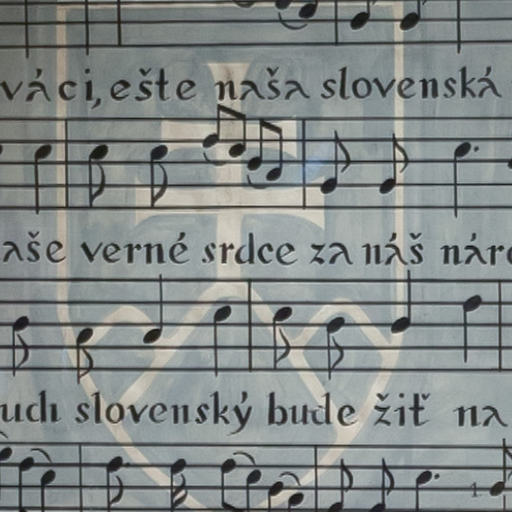 váci, ešte naša slovenská
aše verné srdce za náš náro
uch slovenský bude žiť na